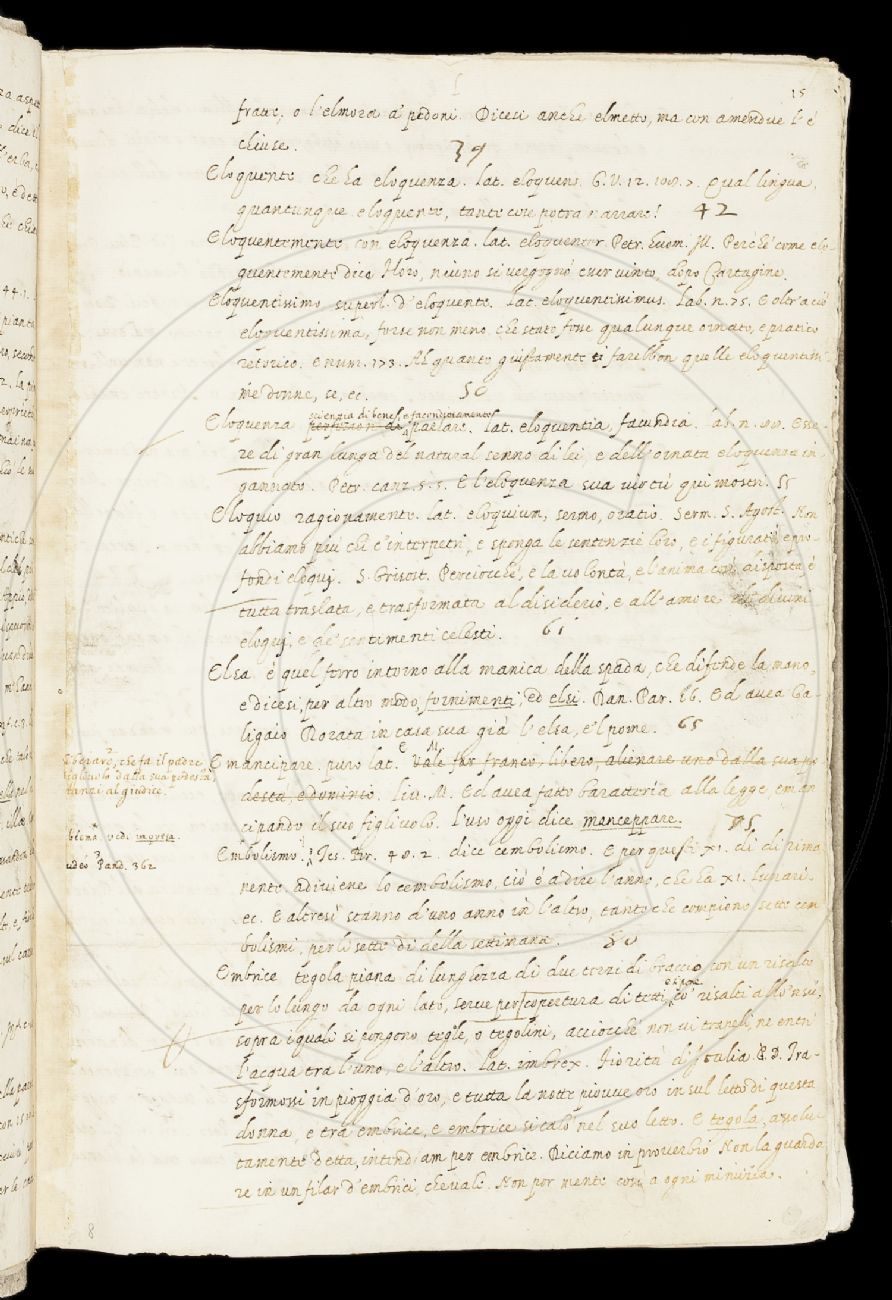 15
frate, o l'elmora a' pedoni. Dicesi anche elmetto, ma con amendue l' é
chiuse.
39
Eloquente che ha eloquenza. lat. eloquens. G. V. 12. 108. 7. Qual lingua,
quantunque eloquente, tante cose potra narrare! 42
Eloquentemente con eloquenza. lat. eloquenter. Petr. huom. Ill. Perche' come elo-
quentemente dice Floro, niuno si vergognó esser vinto, dopo Cartagine.
Eloquentissimo superl. d'eloquente. lat. eloquentissimus. lab. n. 75. E oltr'a ció
eloquentissima, forse non meno, che stato fosse qualunque ornato, e pratico
retorico. E num. 173. Ah quanto giustamente ti farebbon quelle eloquentissi-
me donne, ec, ec. 50
Eloquenza scienzia di bene, e facondissimamente parlare. lat. eloquentia, facundia. lab. n. Esse-
re di gran lunga del natural senno di lei e dell'ornata eloquenza in-
gannato. Petr. canz. 5. 5. E l'eloquenza sua virtú qui mostri. 55
Eloquio ragionamento. lat. eloquium, sermo, oratio. Serm. S. Agost. Non
abbiamo piú chi c'interpetri, e sponga le sentenzie loro, e i figurati, e pro-
fondi eloquj. S. Grisost. Perciocché, e la volontá, e l'anima cosí disposta, é
tutta traslata, e trasformata al disiderio, e all'amore de' divini
eloquj, e de' sentimenti celesti. 61
Elsa é quel ferro intorno alla manica della spada, che difende la mano,
e dicesi, per altro modo, fornimenti, ed elsi. Dan. Par. 16. Ed avea Ga-
ligaio Dorata in casa sua giá l'elsa, e'l pome. 65
Emancipare. puro lat. Vale far franco, libero, alienare uno dalla sua po-
desta, e dominio. liv. M. Ed avea fatto baratteria alla legge eman-
cipando il suo figliuolo. l'uso oggi dice manceppare. 75
che fa il padre,
figliuolo dalla sua podestá,
innanzi al giudice.
vedi impresa.
Pand. 362
Embolismo. Tes. Br. 48. 2. dice embolismo. E per questi XI. dí di rima-
nente adiviene lo embolismo, ció é a dire l'anno, che ha XI. lunari.
ec. E altresí stanno d'uno anno in l'altro, tanto che compiono sette em-
bolismi, per li sette dí della settimana. 80
Embrice tegola piana di lunghezza di due terzi di braccio con un risalto
per lo lungo da ogni lato, serve per copertura di tetti, co' risalti allo 'nsú,
sopra i quali si pongono tegole, o tegolini, acciocché non vi trapeli, ne entri
l'acqua tra l'uno, e l'altro. lat. imbrex. Fioritá d'Italia P. D. Tra-
sformossi in pioggia d'oro, e tutta la notte piovve oro in sul letto di questa
donna, e tra embrice, e embrice si caló nel suo letto. E tegola, assolu-
tamente detta, intendiam per embrice. Diciamo in proverbio Non la guarda-
re in un filar d'embrici, che vale. Non por mente cosí a ogni minuzia.
8